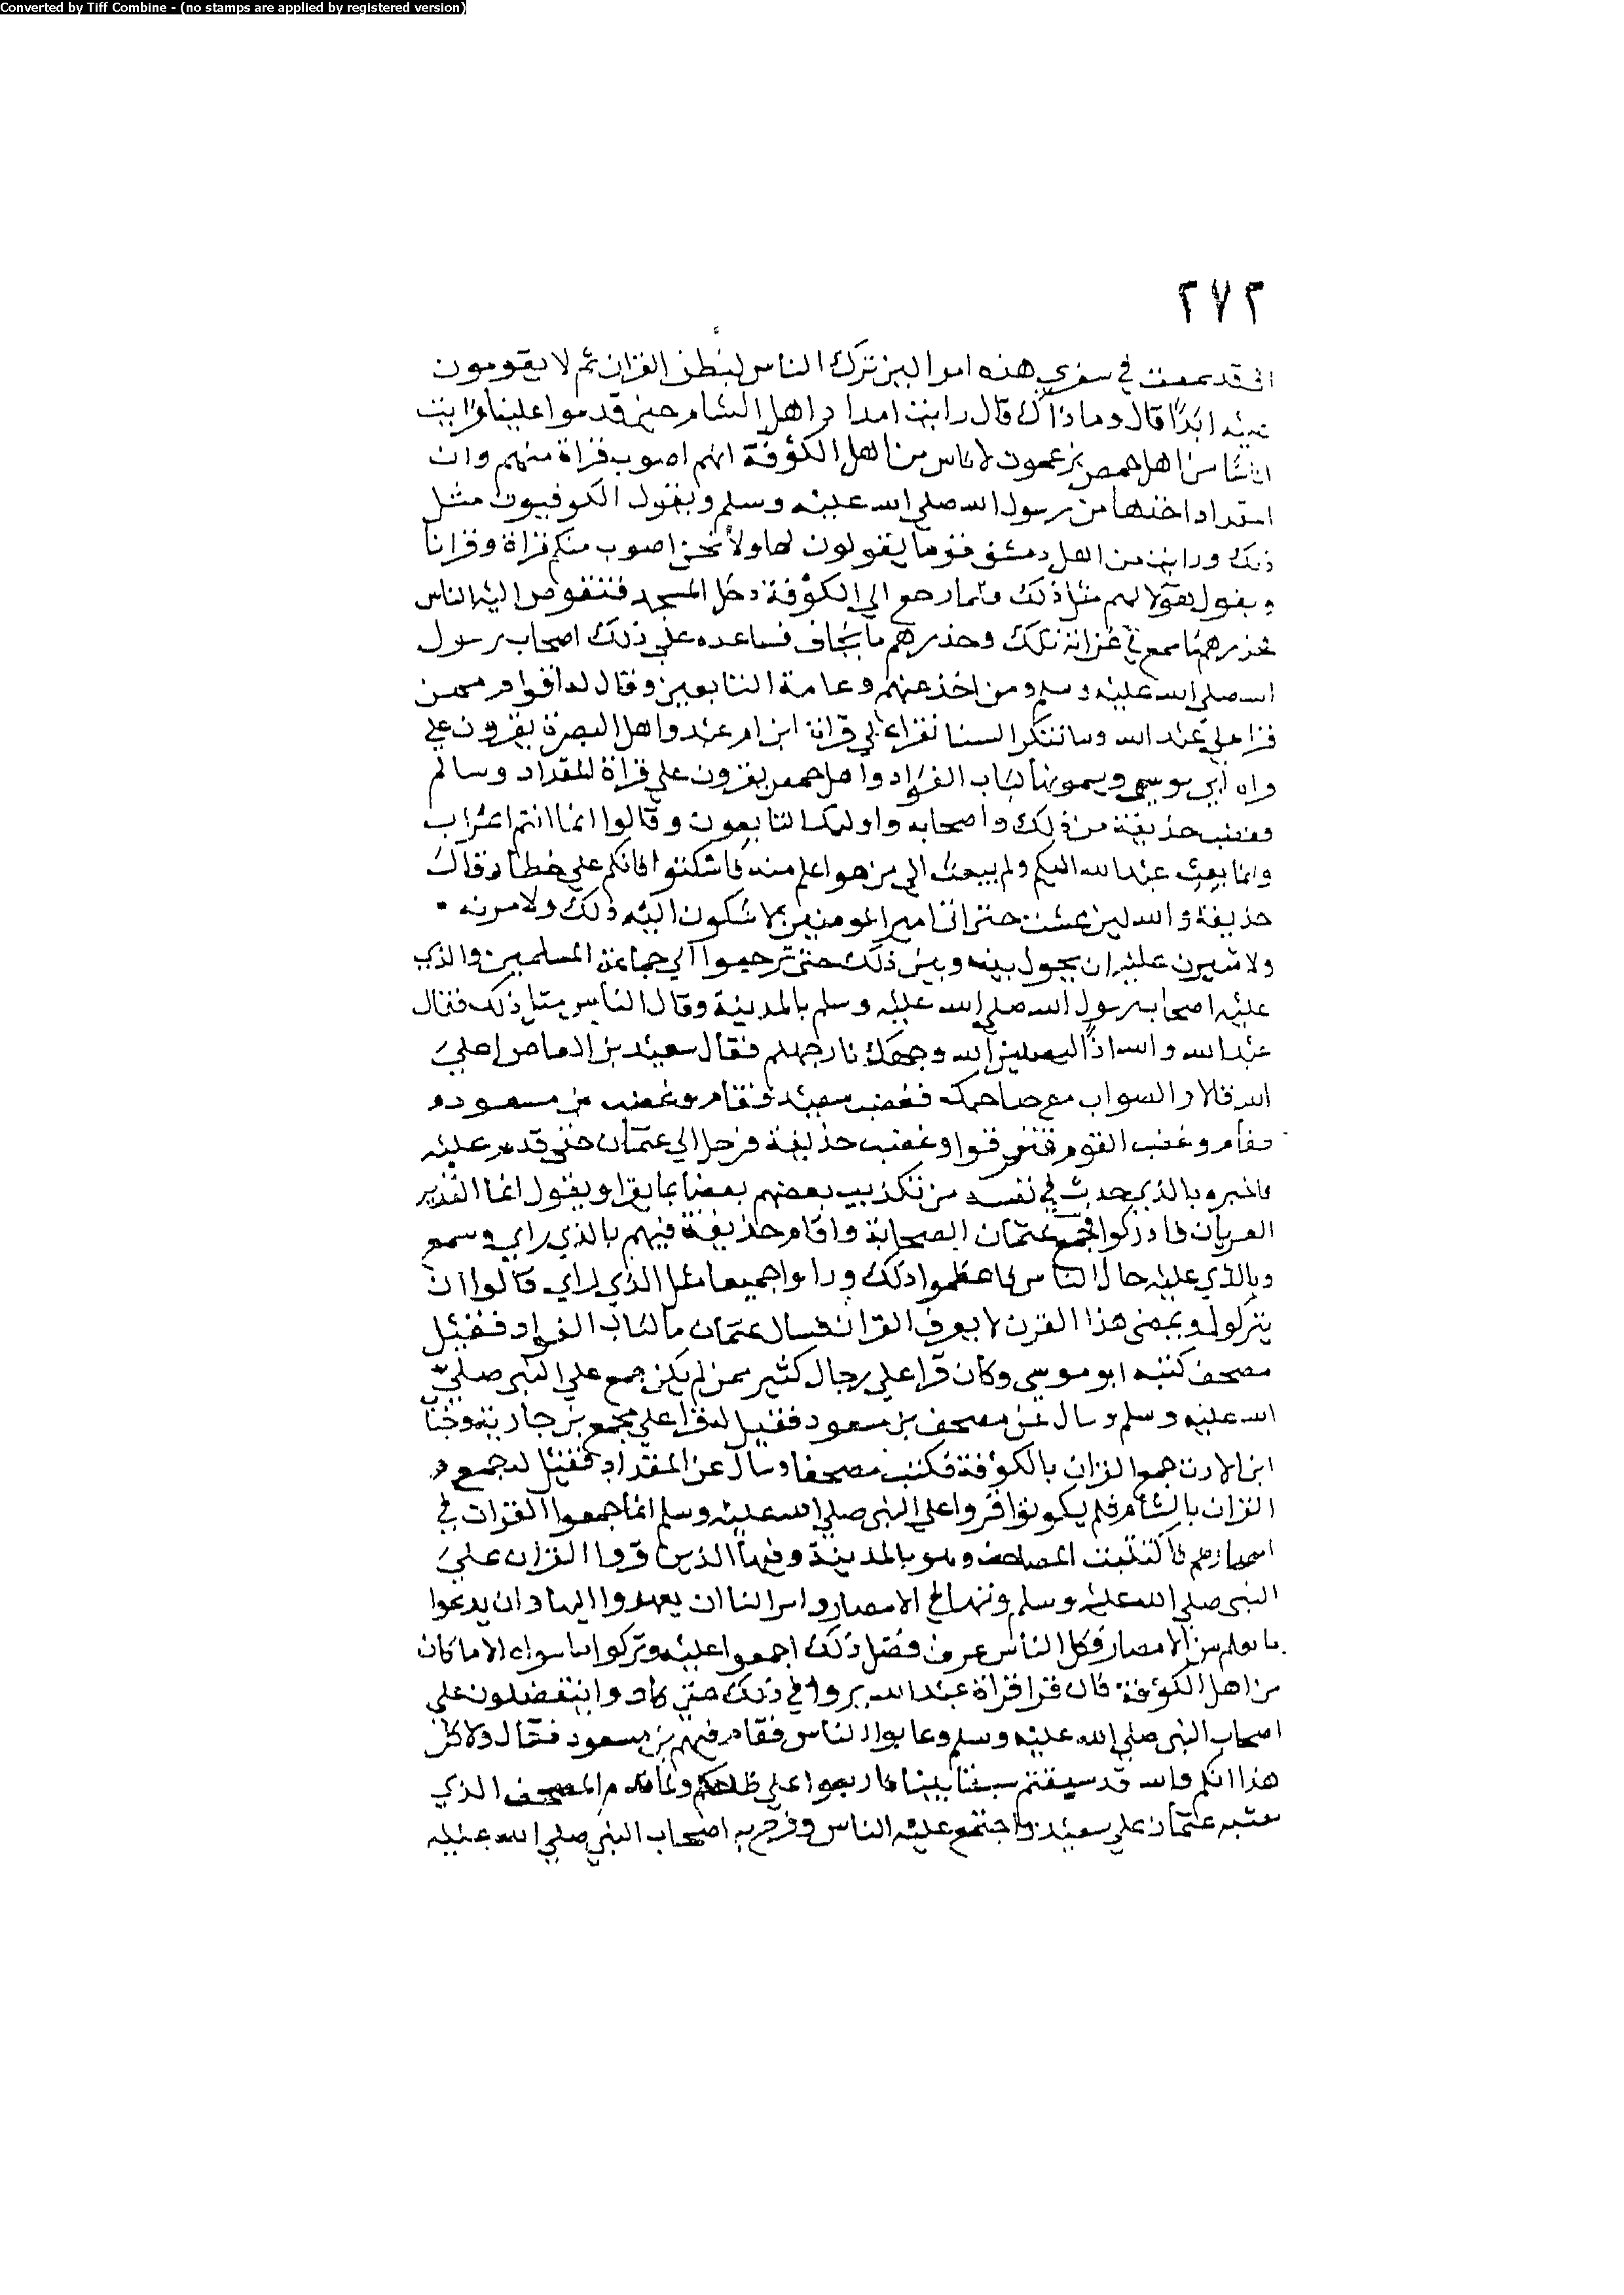 Converted by Tiff Combine - (no stamps are applied by registered version)
٢٧٢
اني قد سمعت في سفري هذه امرا لين ترك الناس ليضلن القران ثم لا يقومون
عليه ابدا قال وما ذاك قال رايت امداد اهل الشام حين قدموا علينا فرايت
اناسا من اهل حمص يزعمون لاناس من اهل الكوفة انهم اصوب قراة منهم وان
المقداد اخذها من رسول الله صلى الله عليه وسلم ويقول الكوفيون مثل
ذلك ورايت من اهل دمشق قوما يقولون لهاولا نحن اصوب منكم قراة وقرانا
ويقول هولا لهم مثل ذلك فلما رجع الي الكوفة دخل المسجد فتقوض اليه الناس
فحذرهم ما سمع في غزاته تلك وحذرهم ما يخاف فساعده علي ذلك اصحاب رسول
الله صلي الله عليه وسلم ومن اخذ عنهم وعامة التابعين وقال له اقوام ممن
قرا علي عبد الله وما تنكر السنا نقرا علي قراة ابن ام عبد واهل البصرة يقرون علي
قراة ابي موسي ويسمونها لباب الفواد واهل حمص يقرون علي قراة المقداد وسالم
فغضب حذيفة من ذلك واصحابه واوليك التابعون وقالوا انما انتم اعراب
وانما بعث عبد الله اليكم ولم يبعث الي من هو اعلم منه فاسكتوا فانكم علي خطا وقال
حذيفة والله لين عشت حتي اتي امير المومنين لاشكون اليه ذلك ولامرنه
ولاشيرن عليه ان يحول بينهم وبين ذلك حتي ترجعوا الي جماعة المسلمين والذي
عليه اصحاب رسول الله صلي الله عليه وسلم بالمدينة وقال الناس مثل ذلك فقال
عبد الله والله اذا ليصلين الله وجهك نار جهنم فقال سعيد بن العاص اعلي
الله تالا والصواب مع صاحبك فغضب سعيد فقام وغضب بن مسعود
فقام وغضب القوم فتفرقوا وغضب حذيفة فرحل الي عثمان حتي قدم عليه
فاخبره بالذي حدث في نفسه من تكذيب بعضهم بعضا بما يقرا ويقول انما النذير
العريان فادركوا فجمع عثمان الصحابة واقام حذيفة فيهم بالذي راي وسمع
وبالذي عليه حال الناس فاعظموا ذلك وراوا جميعا مثل الذي راي قالوا ان
يتركوا ويمضي هذا القرن لا يعرف القران فسال عثمان ما لباب الفواد فقيل
مصحف كتبه ابو موسي وكان قرا علي رجال كثير ممن لم يكن جمع علي النبي صلي
الله عليه وسلم وسال عن مصحف بن مسعود فقيل له قرا علي مجمع بن جارية وخباب
ابن الارت جمع القران بالكوفة فكتب مصحفا وسال عن المقداد فقيل له جمع
القران بالشام فلم يكونوا قروا علي النبي صلي الله عليه وسلم انما جمعوا القران في
امصارهم فاكتتبت المصاحف وهو بالمدينة وفيها الذين قروا القران علي
النبي صلي الله عليه وسلم وبثها في الامصار وامر الناس ان يعمدوا اليها وان يدعوا
ما تعلم من الامصار فكل الناس عرف فضل ذلك اجمعوا عليه وتركوا ما سواه الا ما كان
من اهل الكوفة فان قرا قراة عبد الله نزوا في ذلك حتي كادوا يتفضلون علي
اصحاب النبي صلي الله عليه وسلم وعابوا الناس فقام فيهم بن مسعود فقال ولا كل
هذا انكم والله قد سبقتم سبقا بينا فاربعوا علي ظلعكم ولما قدم المصحف الذي
بعثه عثمان علي سعيد واجتمع عليه الناس وفرح به اصحاب النبي صلي الله عليه